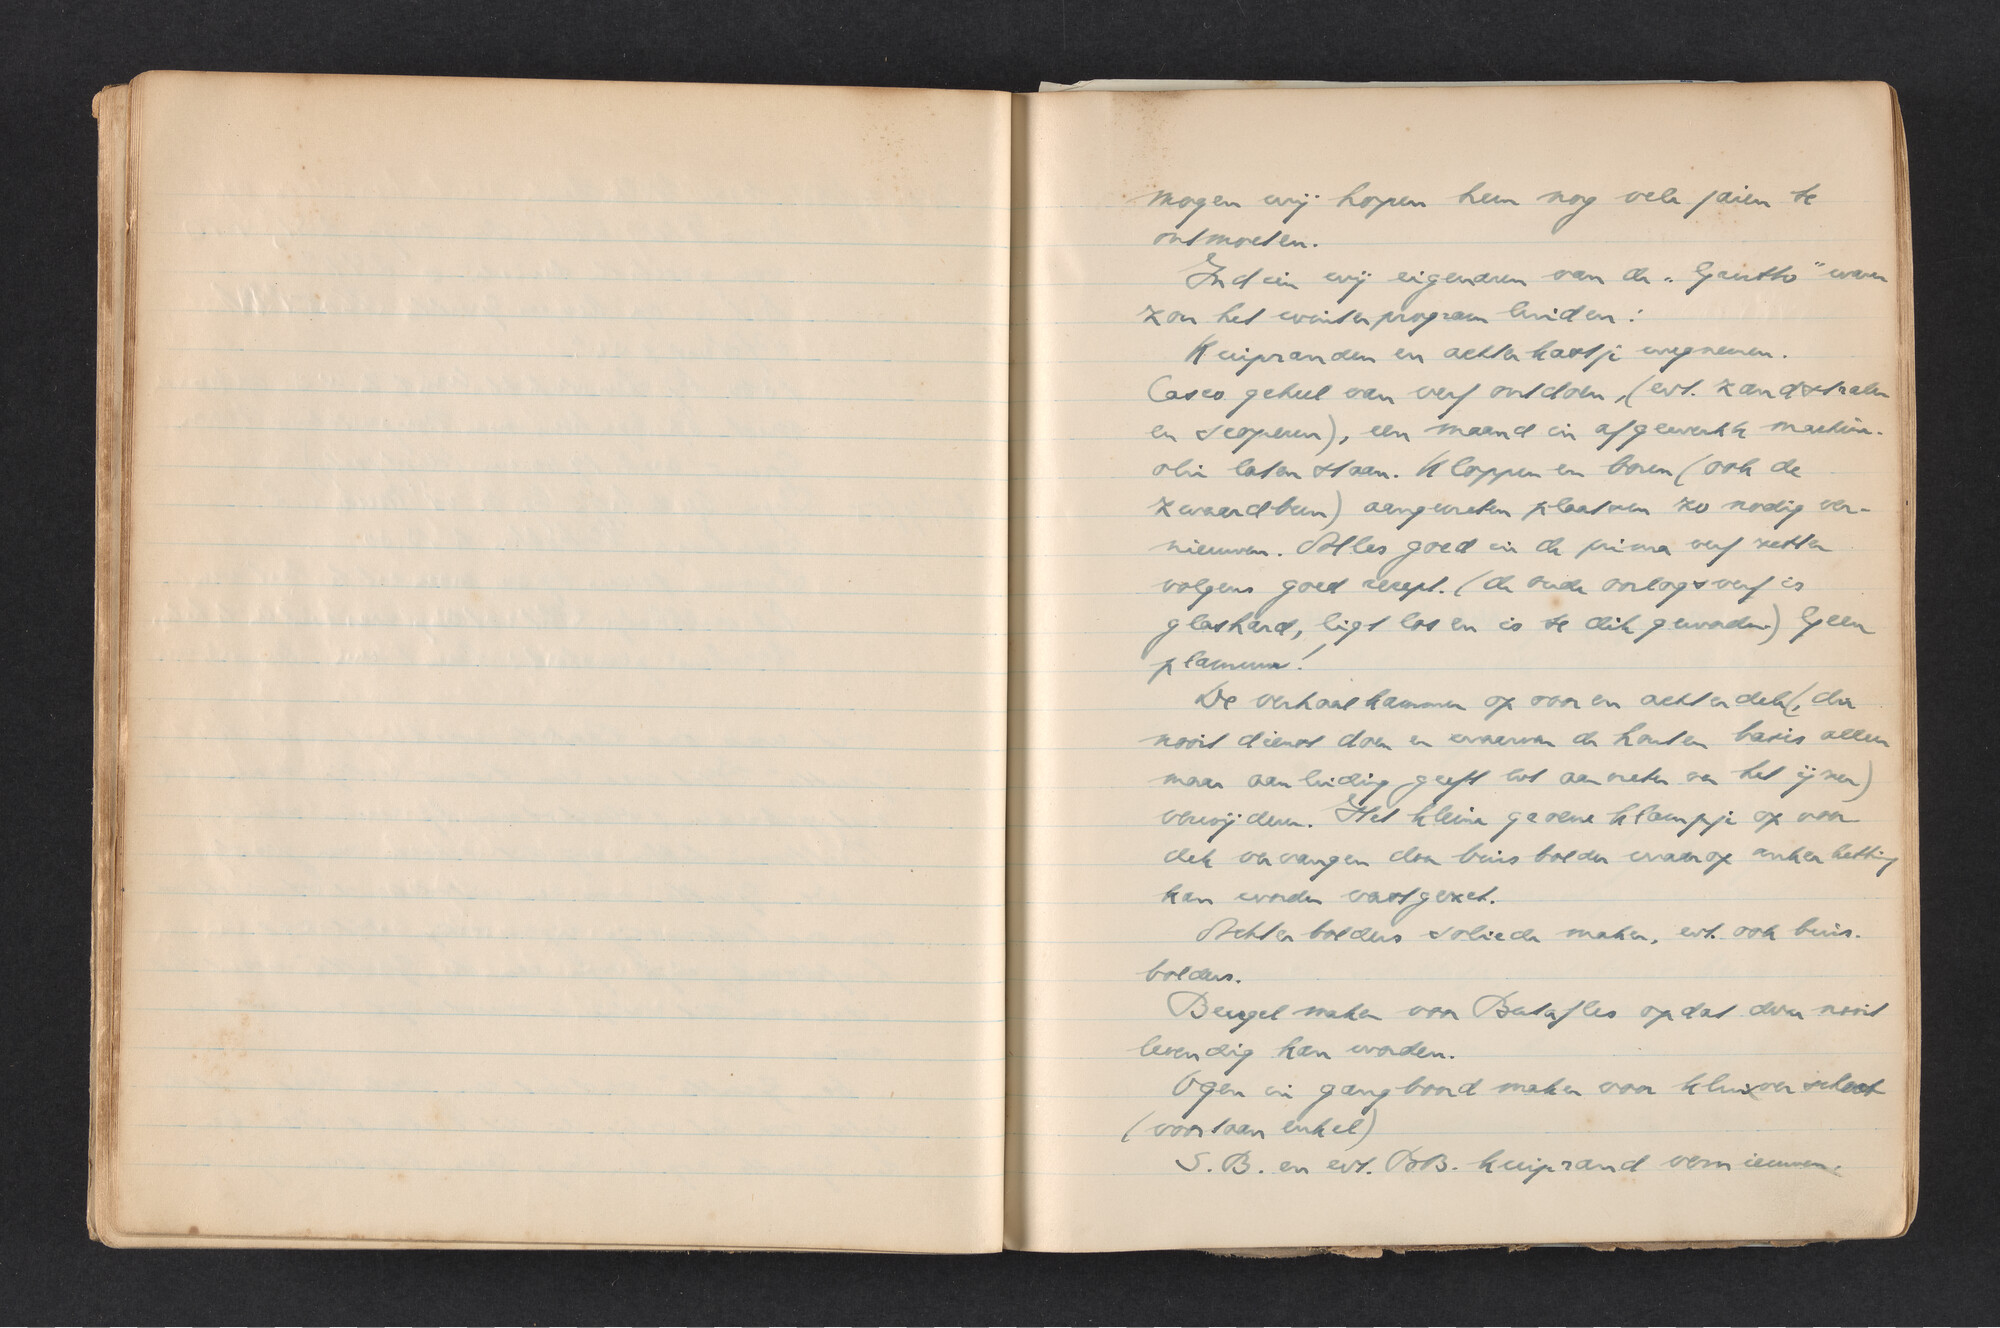 mogen wij hopen hem nog vele jaren te
ontmoeten.
Indien wij eigenaren van de „Gavotto" waren
zou het winterprogram luiden:
Kuipranden en achterkastje wegnemen.
Casco geheel van verf ontdoen, (evt. zandstralen
en scoperen), een maand in afgewerkte machine-
olie laten staan. Kloppen en boren (ook de
zwaardbun) aangevreten plaatsen zo nodig ver-
nieuwen. Alles goed in de prima verf zetten
volgens goed recept. (de oude oorlogsverf is
glashard, ligt los en is te dik geworden) Geen
plamuur!
De verhaalkammen op voor en achterdek (, die
nooit dienst doen en waarvan de houten basis alleen
maar aanleiding geeft tot aanvreten van het ijzer)
verwijderen. Het kleine groene klampje op voor
dek vervangen door buisbolder waarop ankerketting
kan worden vastgezet.
Achterbolders solieder maken, evt. ook buis-
bolders.
Beugel maken voor Butafles opdat deze nooit
levendig kan worden.
Ogen in gangboord maken voor kluiverschoot
(voortaan enkel)
S.B. en evt. BB. kuiprand vernieuwen.